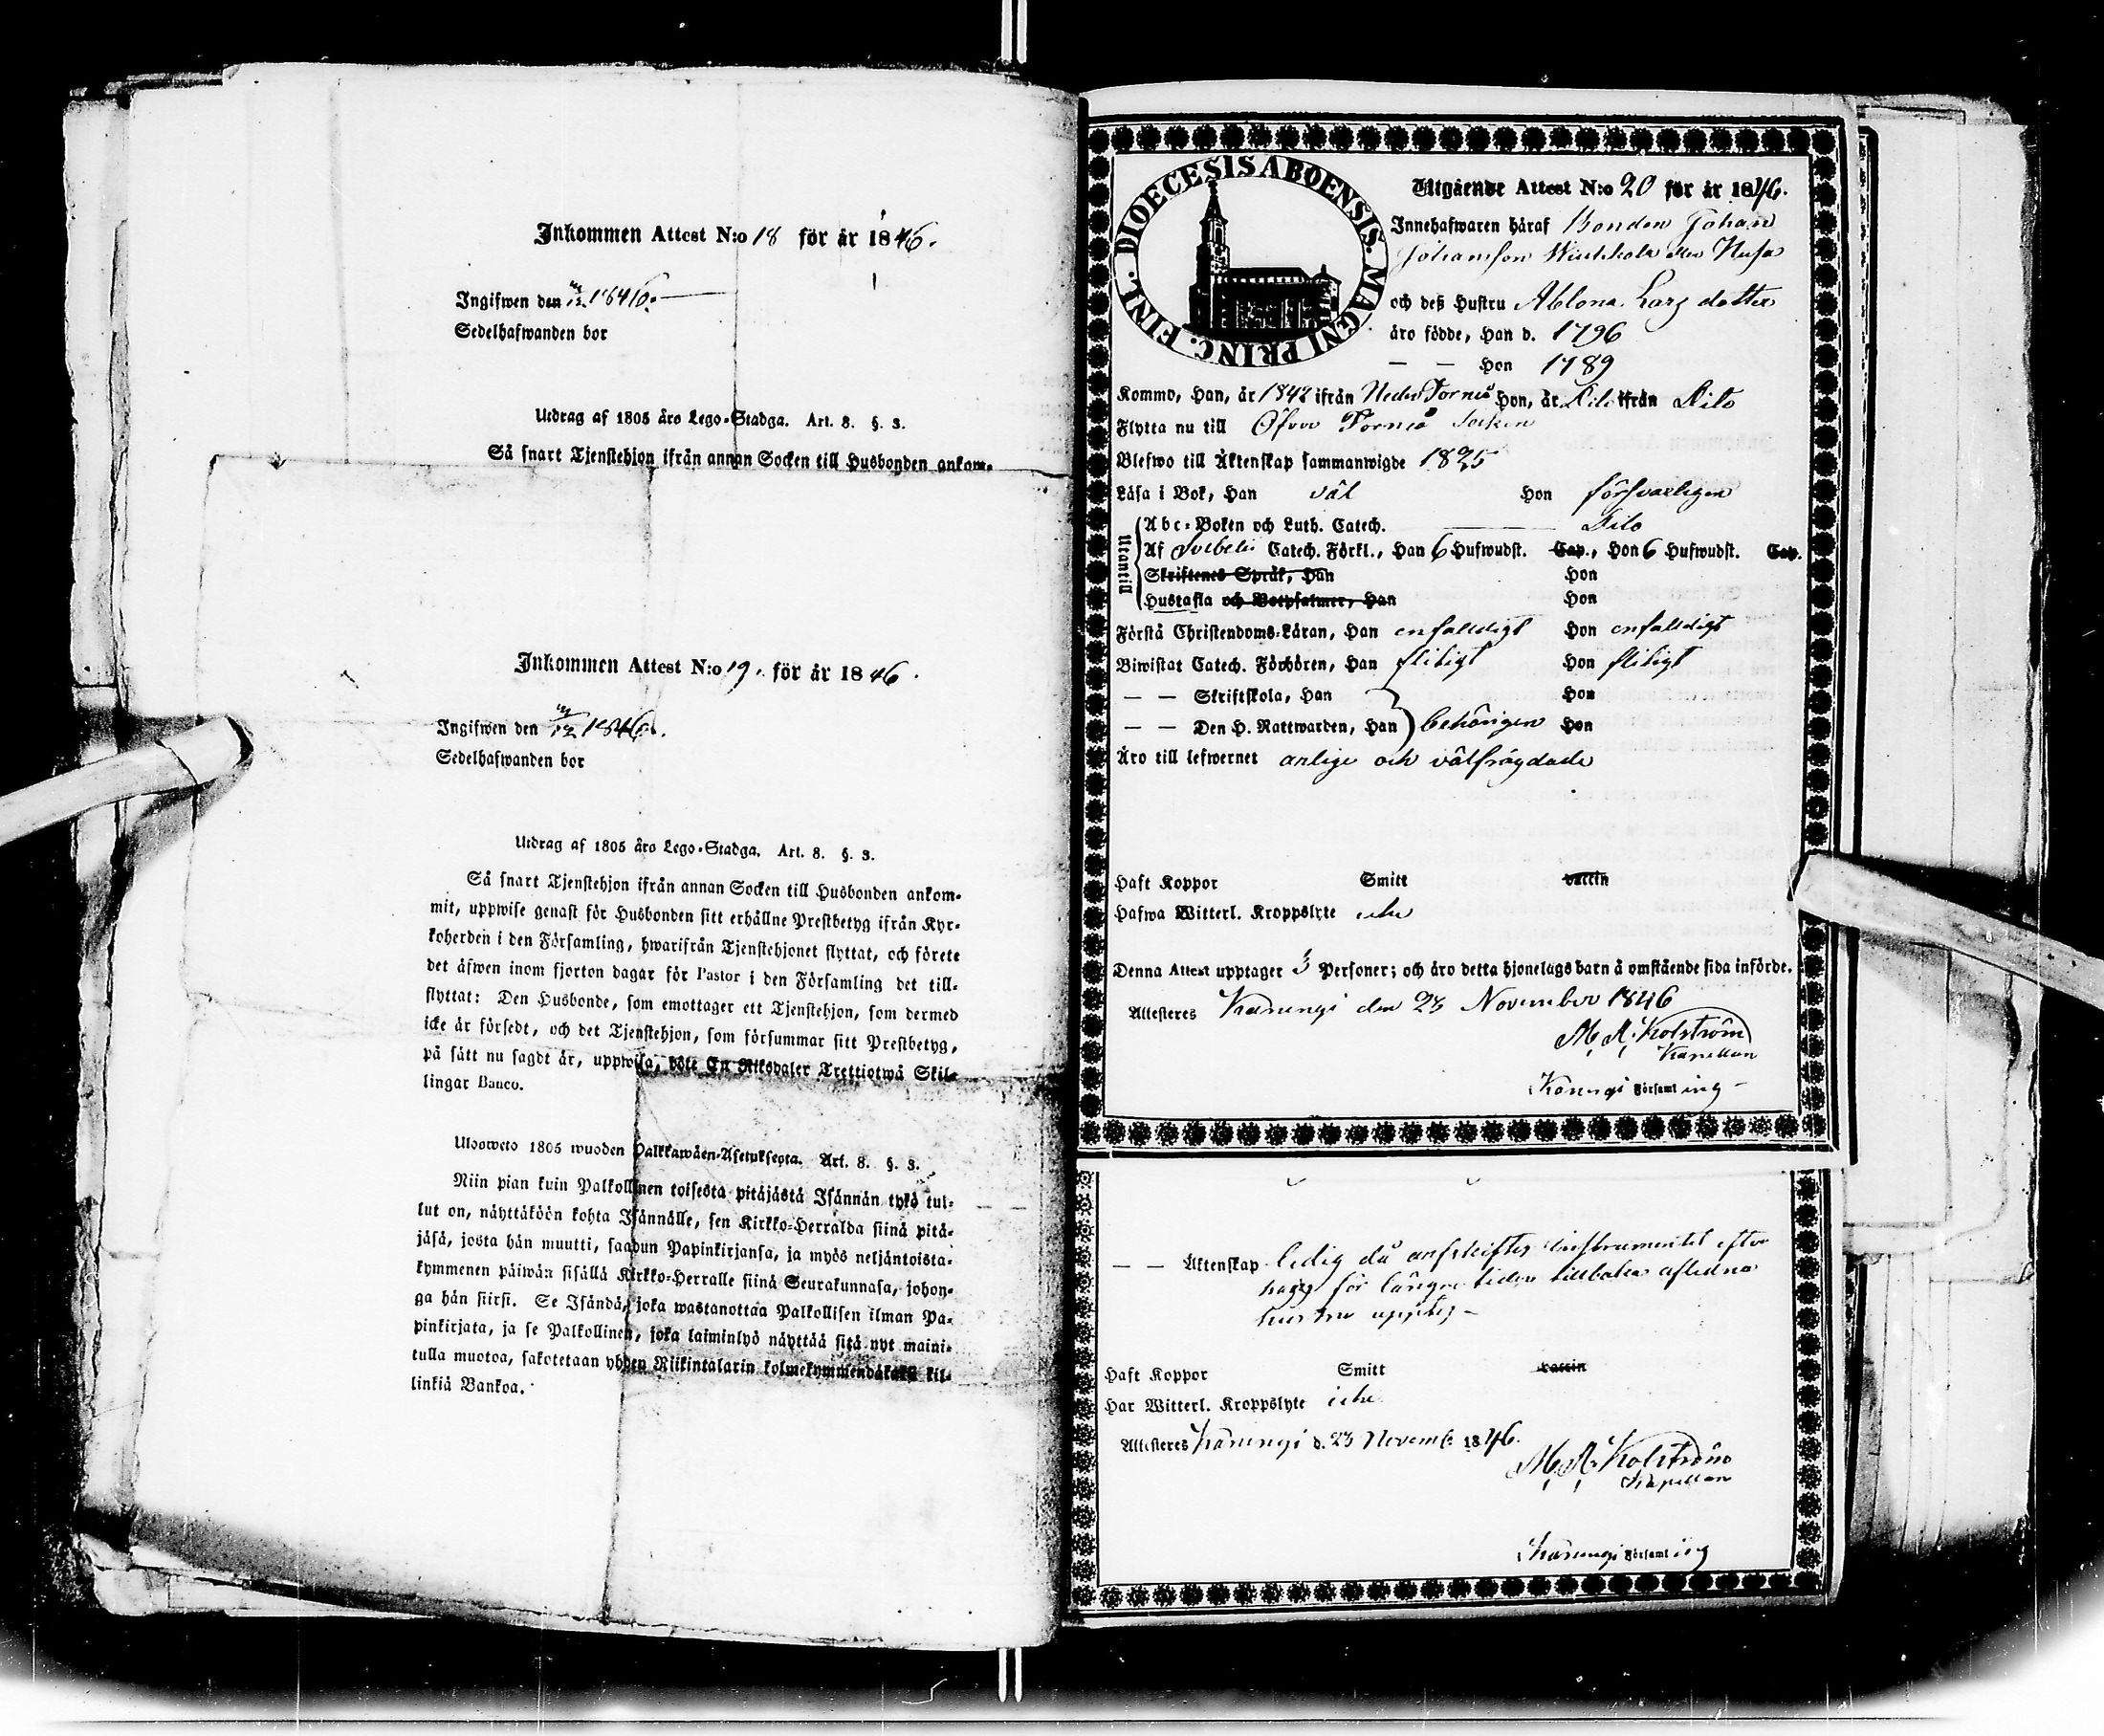 Inkommen Attest N:o 18 för år 1846.
Ingifwen den 1846.
Sedelhafwanden bor
Utdrag af 1805 års Lego-Stadga. Art. 8. §. 3.
Så snart Tjenstehjon ifrån annan Socken till Husbonden ankom-
Inkommen Attest N:o 19. för år 1846.
Ingifwen den 1846.
Sedelhafwanden bor
Utdrag af 1805 års Lego-Stadga. Art. 8. §. 3.
Så snart Tjenstehjon ifrån annan Socken till Husbonden ankom-
mit, uppwise genast för Husbonden sitt erhållne Prestbetyg ifrån Kyr-
koherden i den Församling, hwarifrån Tjenstehjonet flyttat, och förete
det äfwen inom fjorton dagar för Pastor i den Församling det till-
flyttat: Den Husbonde, som emottager ett Tjenstehjon, som dermed
icke är försedt, och det Tjenstehjon, som försummar sitt Prestbetyg,
på sätt nu sagdt är, uppwisa, böte En Riksdaler Trettiotwå Skil-
lingar Banco.
Ulosweto 1805 wuoden Palkkawäen-Asetuksesta. Art. 8. §. 3.
Niin pian kuin Palkollinen toisesta pitäjästä Isännän tykö tul-
lut on, näyttäköön kohta Isännälle, sen Kirkko-Herralda siinä pitä-
jäsä, josta hän muutti, saadun Papinkirjansa, ja myös neljäntoista-
kymmenen päiwän sisällä Kirkko-Herralle siinä Seurakunnasa, johon-
ga hän siirsi. Se Isändä, joka wastanottaa Palkollisen ilman Pa-
pinkirjata, ja se Palkollinen, joka laiminlyö näyttää sitä nyt maini-
tulla muotoa, sakotetaan yhden Riikintalarin kolmekymmendäkaksi kil-
linkiä Bankoa.
DIOECESIS ABOENSIS. MAGNI PRINC. FINL.
Utgående Attest N:o 20 för år 1846.
Innehafwaren häraf Bonden Johan
Johansson
och deß Hustru Ablona Larsdotter
äro födde, Han d. 1796
— — Hon 1789
Kommo, Han, år 1842 ifrån Neder Torneå Hon, år Dito ifrån Dito
Flytta nu till Öfver Torneå Socken
Blefwo till Äktenskap sammanwigde 1825
Läsa i Bok, Han väl Hon försvarligen
Utantill
Abc-Boken och Luth. Catech. — Dito
Af Svebelii Catech. Förkl., Han 6 Hufwudst. Cap., Hon 6 Hufwudst. Cap.
Skriftenes Språk, Han Hon
Hustafla och Botpsalmer, Han Hon
Förstå Christendoms-Läran, Han enfaldigt Hon enfaldigt
Biwistat Catech. Förhören, Han flitigt Hon flitigt
— — Skriftskola, Han Hon
— — Den H. Nattwarden, Han behörigen Hon
Äro till lefwernet ärlige och välfrägdade
Haft Koppor Smitt vaccin
Hafwa Witterl. Kroppslyte icke
Denna Attest upptager 3 Personer; och äro detta hjonelags barn å omstående sida införde.
Attesteres Karungi den 23 November 1846
M. A. Kolström
Kapellan
Karungi Församling
— — Äktenskap ledig då
för längre tider tillbaka aflidna
hustru
Haft Koppor Smitt vaccin
Har Witterl. Kroppslyte icke
Attesteres Karungi d. 23 Novemb. 1846.
M. A. Kolström
Kapellan
Karungi Församling